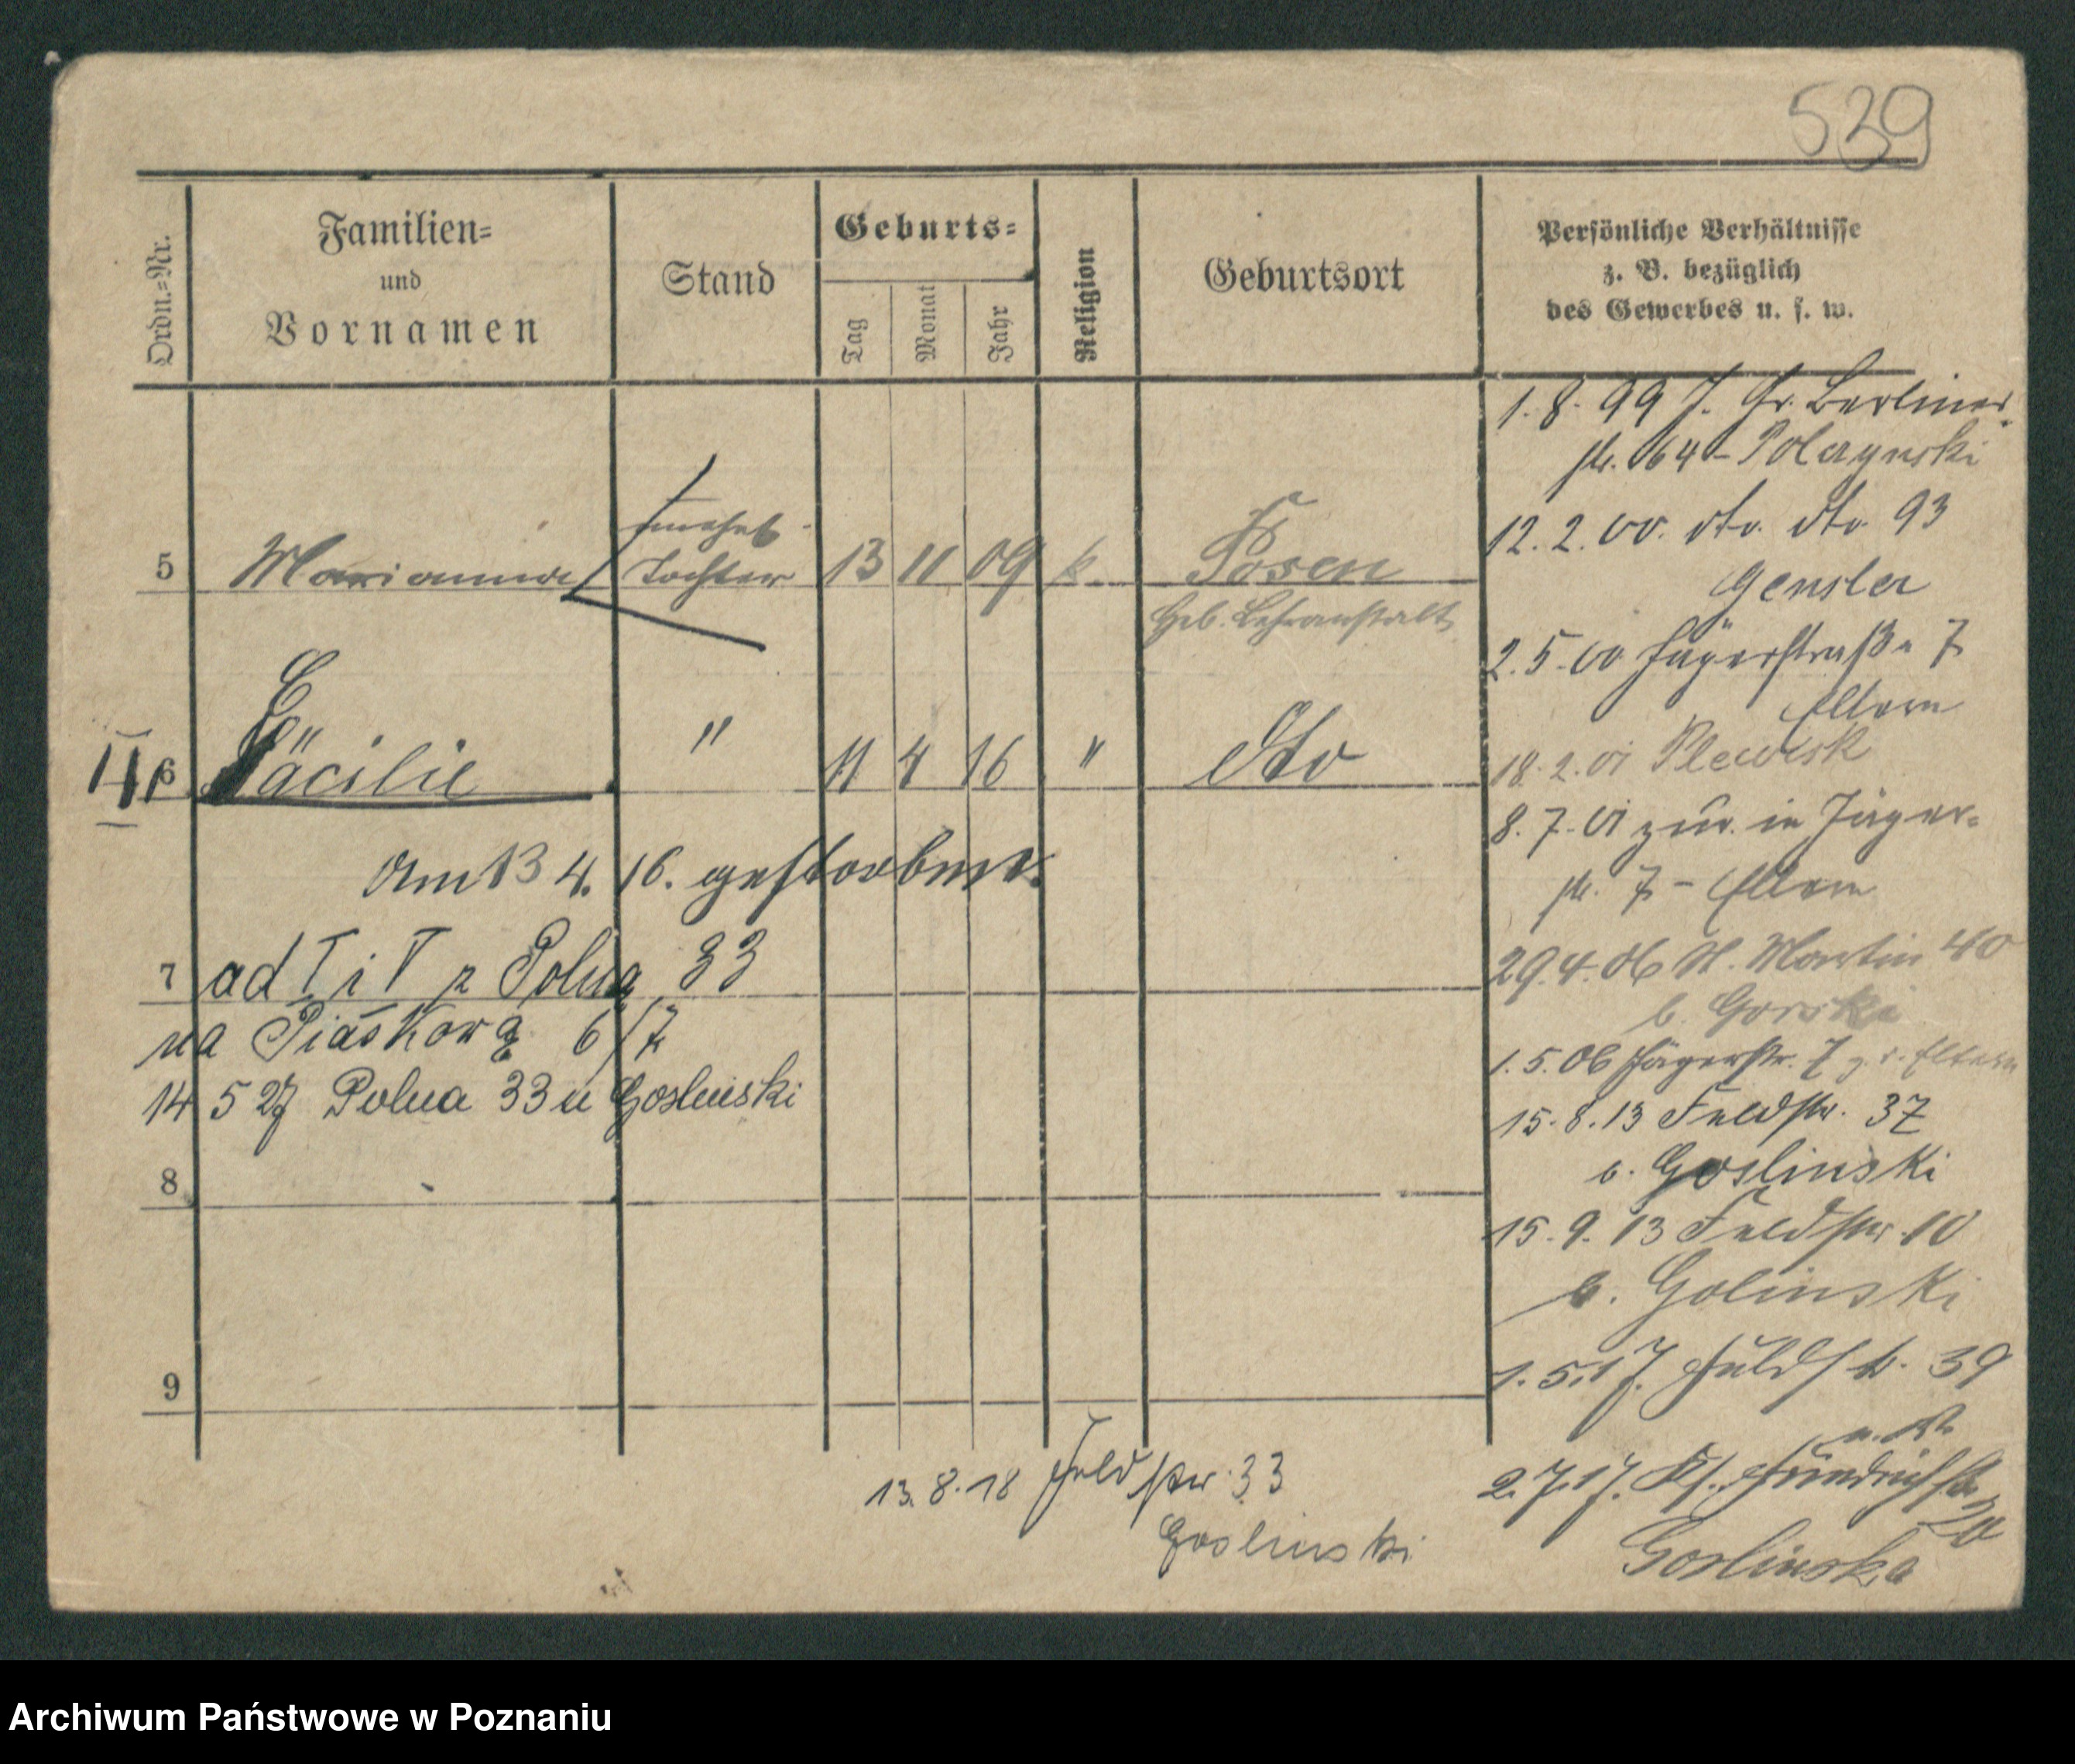 539
Ordn.=Nr.
Familien=
und
Vornamen
Stand
Geburts=
Tag
Monat
Jahr
Religion
Geburtsort
Persönliche Verhältnisse
z. B. bezüglich
des Gewerbes u. s. w.
5 Marianna unehel. Tochter 13 11 09 k. Posen
Geb. Lehranstalt
6 Cäcilie " 11 4 16 " dto
am 13 4. 16. gestorben.
7 ad I i V z Polna 33
na Piaskową 6/7
14 5 27 Polna 33 u Goslinski
8
9
1. 8. 99 Gr. Berliner
str. 64 -
12. 2. 00. dto. dto 93
Gensler
2. 5. 00 Jägerstraße 7
Eltern
18. 2. 01 Plewisk
8. 7. 01 zur. in Jäger-
str. 7 - Eltern
29. 4. 06 St. Martin 40
b. Gorski
1. 5. 06 Jägerstr. 7 Eltern
15. 8. 13 Feldstr. 37
b. Goslinski
15. 9. 13 Feldstr. 10
b. Golinski
1. 5. 17. Feldstr. 39
2. 7. 17. Friedrichstr. 20
Goslinska
13. 8. 18 Feldstr. 33
Goslinski
Archiwum Państwowe w Poznaniu